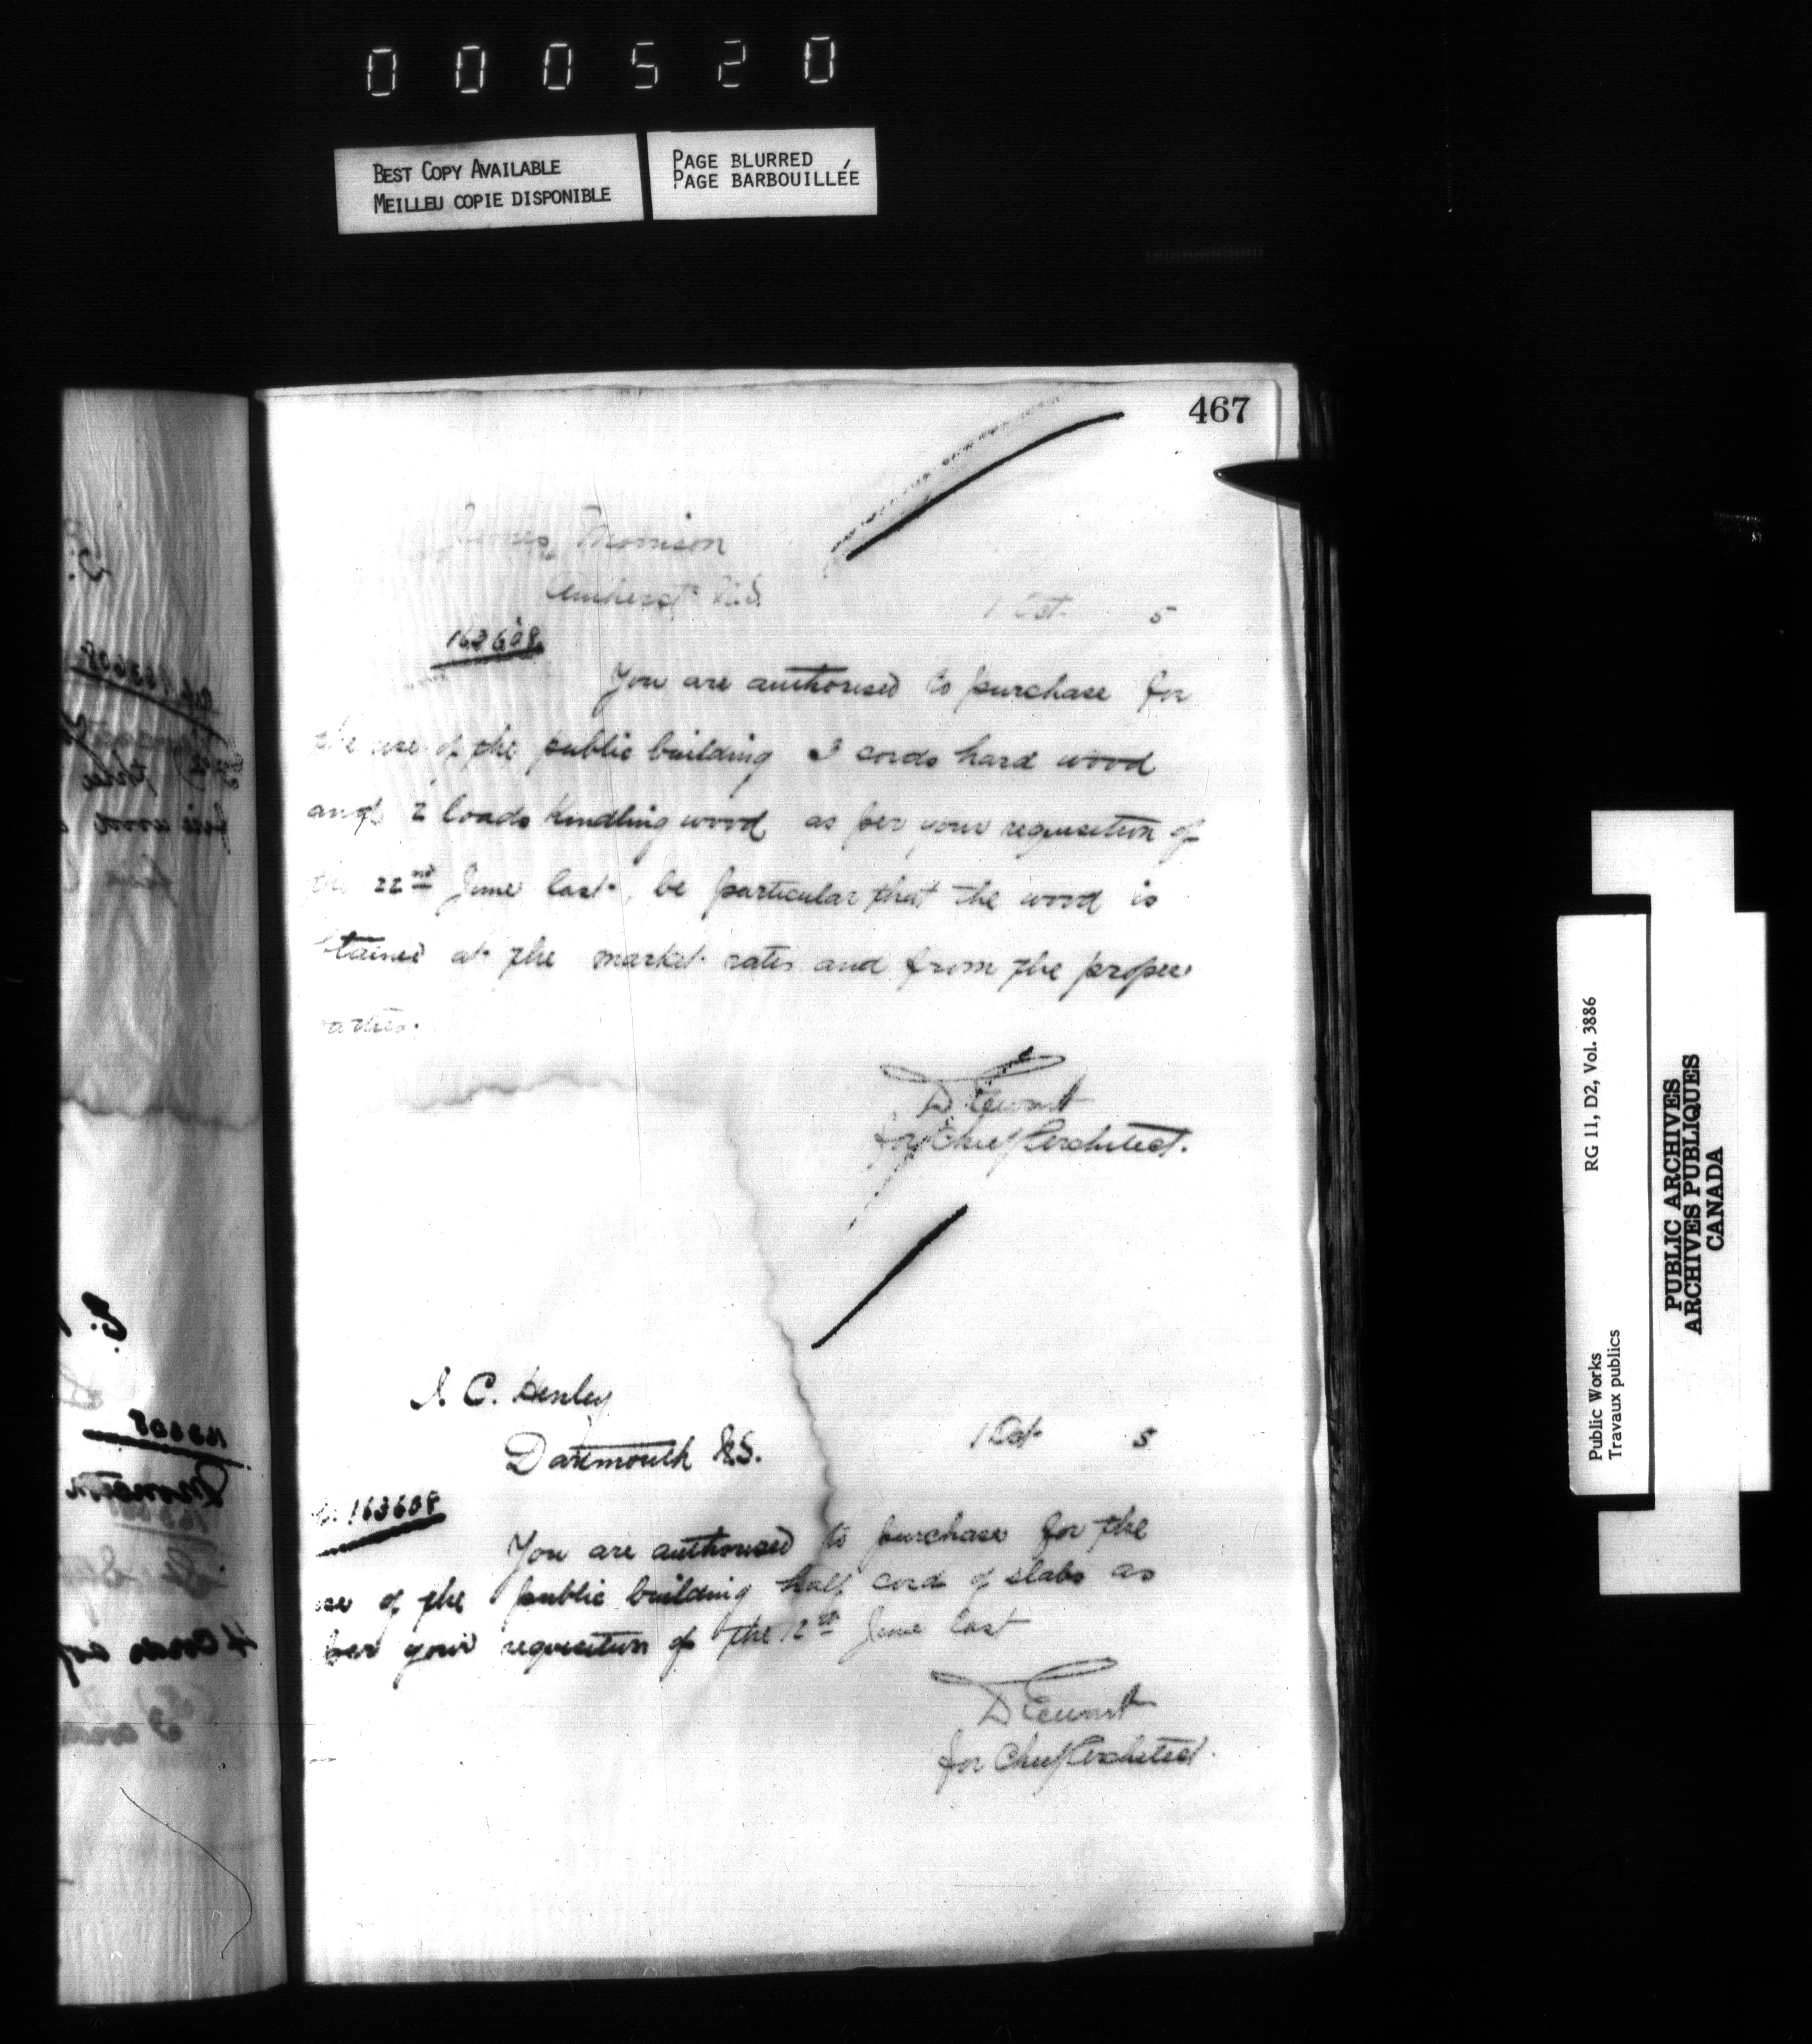 000520
BEST COPY AVAILABLE
MEILLEU COPIE DISPONIBLE
PAGE BLURRED
PAGE BARBOUILLÉE
467
James Morrison
Amherst N.S.
1 Oct. 5
163608
You are authorised to purchase for
the use of the public building 3 cords hard wood
and 2 loads kindling wood as per your requisition of
the 22nd June last, be particular that the wood is
btained at the market rates and from the proper
arties.
D Ewart
for Chief Architect.
J. C. Henley
Dartmouth N.S.
1 Oct 5
163608
You are authorised to purchase for the
se of the public building half cord of slabs as
per your requisition of the 12th June last
D Ewart
for Chief Architect.
Public Works
Travaux publics
RG 11, D2, Vol. 3886
PUBLIC ARCHIVES
ARCHIVES PUBLIQUES
CANADA